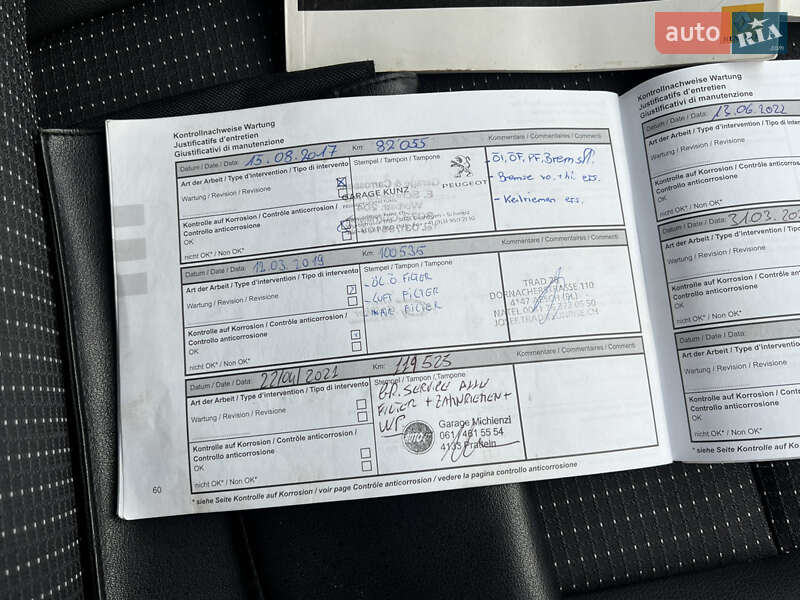 auto RIA
.com
Kontrollnachweise Wartung
Justificatifs d'entretien
Giustificativi di manutenzione
Datum / Date / Data: 15.08.2017 Km: 82 055
Art der Arbeit / Type d'intervention / Tipo di intervento
Wartung / Revision / Revisione
Kontrolle auf Korrosion / Contrôle anticorrosion /
Controllo anticorrosione
OK
nicht OK* / Non OK*
Stempel / Tampon / Tampone
GARAGE KUNZ
PEUGEOT
Kommentare / Commentaires / Commenti
- Öl, ÖF, PF, Bremsfl.
- Bremse vo. + hi ers.
- Keilriemen ers.
Datum / Date / Data: 12.03.2019 Km: 100535
Art der Arbeit / Type d'intervention / Tipo di intervento
Wartung / Revision / Revisione
Kontrolle auf Korrosion / Contrôle anticorrosion /
Controllo anticorrosione
OK
nicht OK* / Non OK*
Stempel / Tampon / Tampone
- ÖL Ö FILTER
- LUFT FILTER
FILTER
Kommentare / Commentaires / Commenti
TRAD
DORNACHERSTRASSE 110
4147 AESCH (BL)
NATEL 0041
Datum / Date / Data: 22/04/2021 Km: 119525
Art der Arbeit / Type d'intervention / Tipo di intervento
Wartung / Revision / Revisione
Kontrolle auf Korrosion / Contrôle anticorrosion /
Controllo anticorrosione
OK
nicht OK* / Non OK*
Stempel / Tampon / Tampone
GR. SERVICE ALLE
FILTER + ZAHNRIEMEN +
WP
Garage Michienzi
061 / 461 55 54
4133 Pratteln
Kommentare / Commentaires / Commenti
60
* siehe Seite Kontrolle auf Korrosion / voir page Contrôle anticorrosion / vedere la pagina controllo anticorrosione
Kontrollnachweise Wartung
Justificatifs d'entretien
Giustificativi di manutenzione
Datum / Date / Data: 13.06.2022
Art der Arbeit / Type d'intervention / Tipo di
Wartung / Revision / Revisione
Kontrolle auf Korrosion / Contrôle anticorros
Controllo anticorrosione
OK
nicht OK* / Non OK*
Datum / Date / Data: 31.03.20
Art der Arbeit / Type d'intervention / Tipo
Wartung / Revision / Revisione
Kontrolle auf Korrosion / Contrôle anticor
Controllo anticorrosione
OK
nicht OK* / Non OK*
Datum / Date / Data:
Art der Arbeit / Type d'intervention / Tip
Wartung / Revision / Revisione
Kontrolle auf Korrosion / Contrôle antic
Controllo anticorrosione
OK
nicht OK* / Non OK*
* siehe Seite Kontrolle auf Korrosion / voir